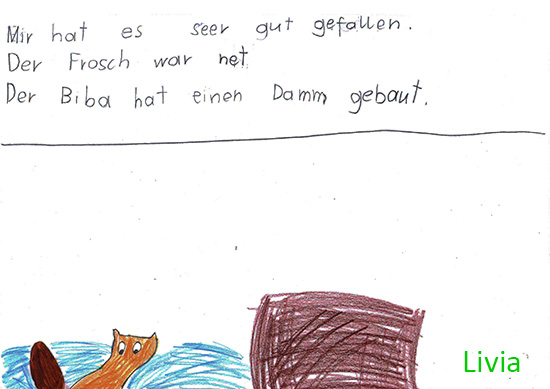 Mir hat es seer gut gefallen.
Der Frosch war net
Der Biba hat einen Damm gebaut.
Livia